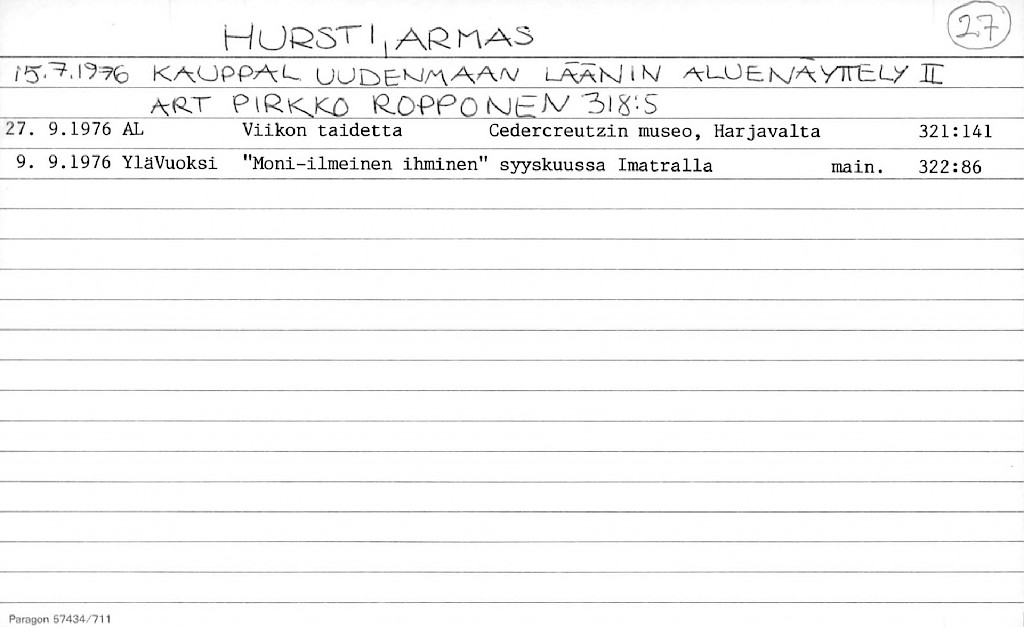 27
HURSTI, ARMAS
15.7.1976 KAUPPAL UUDENMAAN LÄÄNIN ALUENÄYTTELY II
ART PIRKKO ROPPONEN 318:5
27. 9.1976 AL Viikon taidetta Cedercreutzin museo, Harjavalta 321:141
9. 9.1976 YläVuoksi "Moni-ilmeinen ihminen" syyskuussa Imatralla main. 322:86
Paragon 57434/711